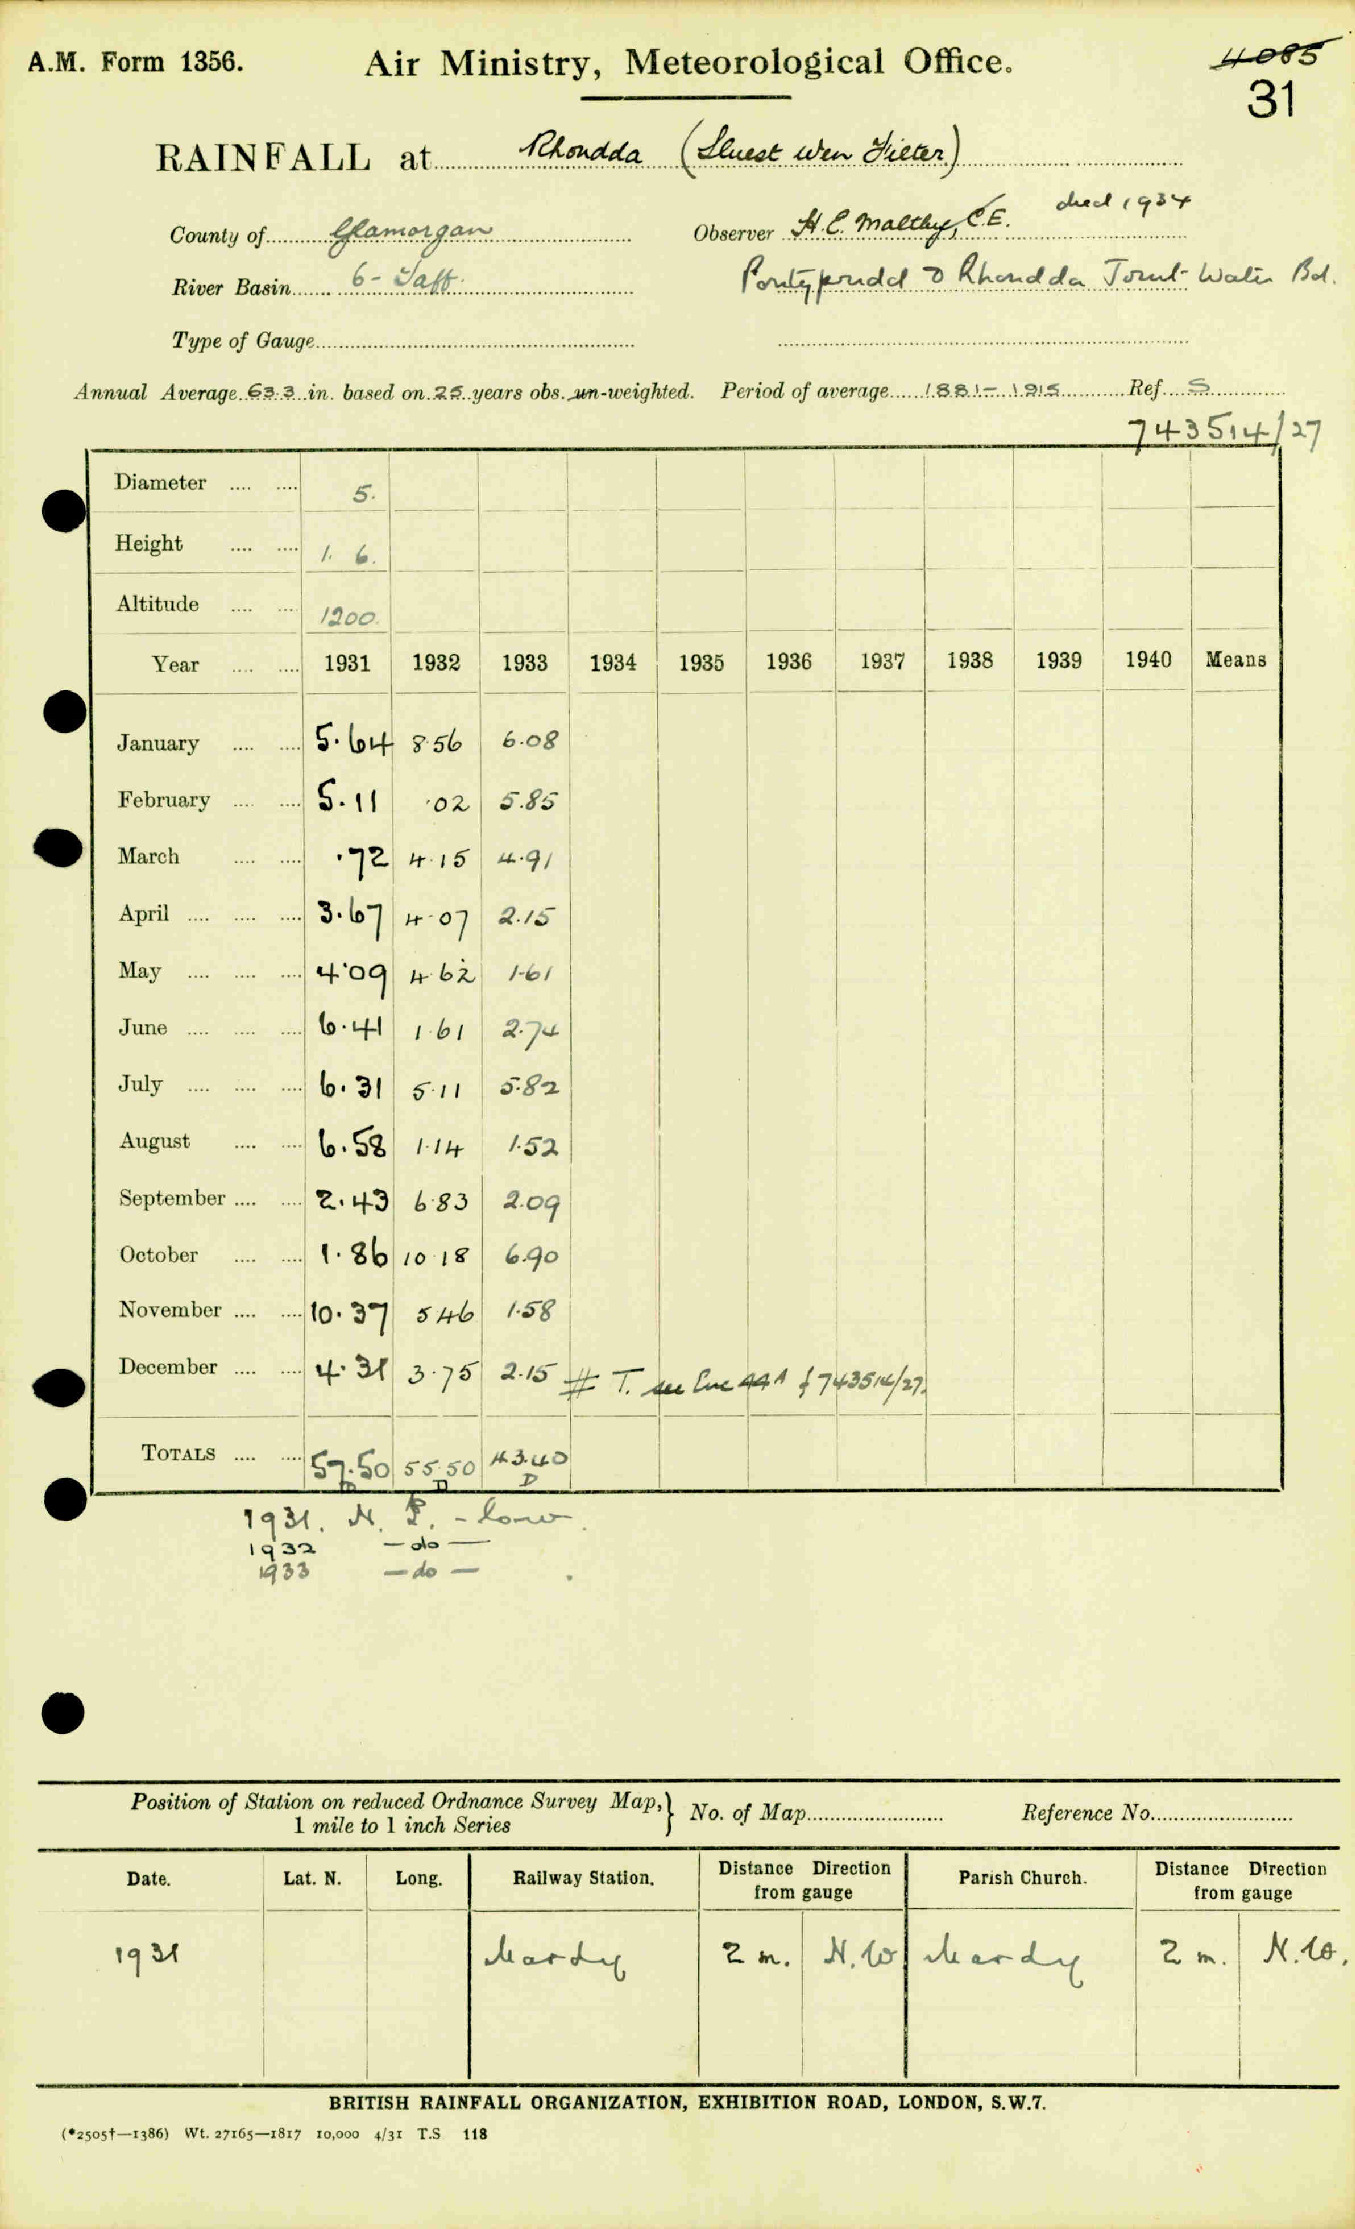 A.M. Form 1356. Air Ministry, Meteorological Office. 4085
31
RAINFALL at Rhondda (Lluest Wen Filter)
County of Glamorgan Observer H. E. Maltby, C.E. died 1934
River Basin 6 - Taff. Pontypridd & Rhondda Joint Water Bd.
Type of Gauge
Annual Average 63.3 in. based on 25 years obs. un-weighted. Period of average 1881-1915 Ref. S
743514/27
Diameter .... .... 5.
Height .... .... 1. 6.
Altitude .... .... 1200.
Year .... .... 1931 1932 1933 1934 1935 1936 1937 1938 1939 1940 Means
January .... .... 5.64 8.56 6.08
February .... .... 5.11 .02 5.85
March .... .... .72 4.15 4.91
April .... .... .... 3.67 4.07 2.15
May .... .... .... 4.09 4.62 1.61
June .... .... .... 6.41 1.61 2.74
July .... .... .... 6.31 5.11 5.82
August .... .... 6.58 1.14 1.52
September .... .... 2.43 6.83 2.09
October .... .... 1.86 10.18 6.90
November .... .... 10.37 5.46 1.58
December .... .... 4.31 3.75 2.15 # T. see Enc 44A of 743514/27.
TOTALS .... .... 57.50 55.50 43.40
D D
1931. N. P. - low.
1932 - do -
1933 - do -
Position of Station on reduced Ordnance Survey Map, } No. of Map Reference No.
1 mile to 1 inch Series
Date. Lat. N. Long. Railway Station. Distance Direction from gauge Parish Church. Distance Direction from gauge
1931 Mardy 2 m. N.W Mardy 2 m. N.W.
BRITISH RAINFALL ORGANIZATION, EXHIBITION ROAD, LONDON, S.W.7.
(*2505†—1386) Wt. 27165—1817 10,000 4/31 T.S 118